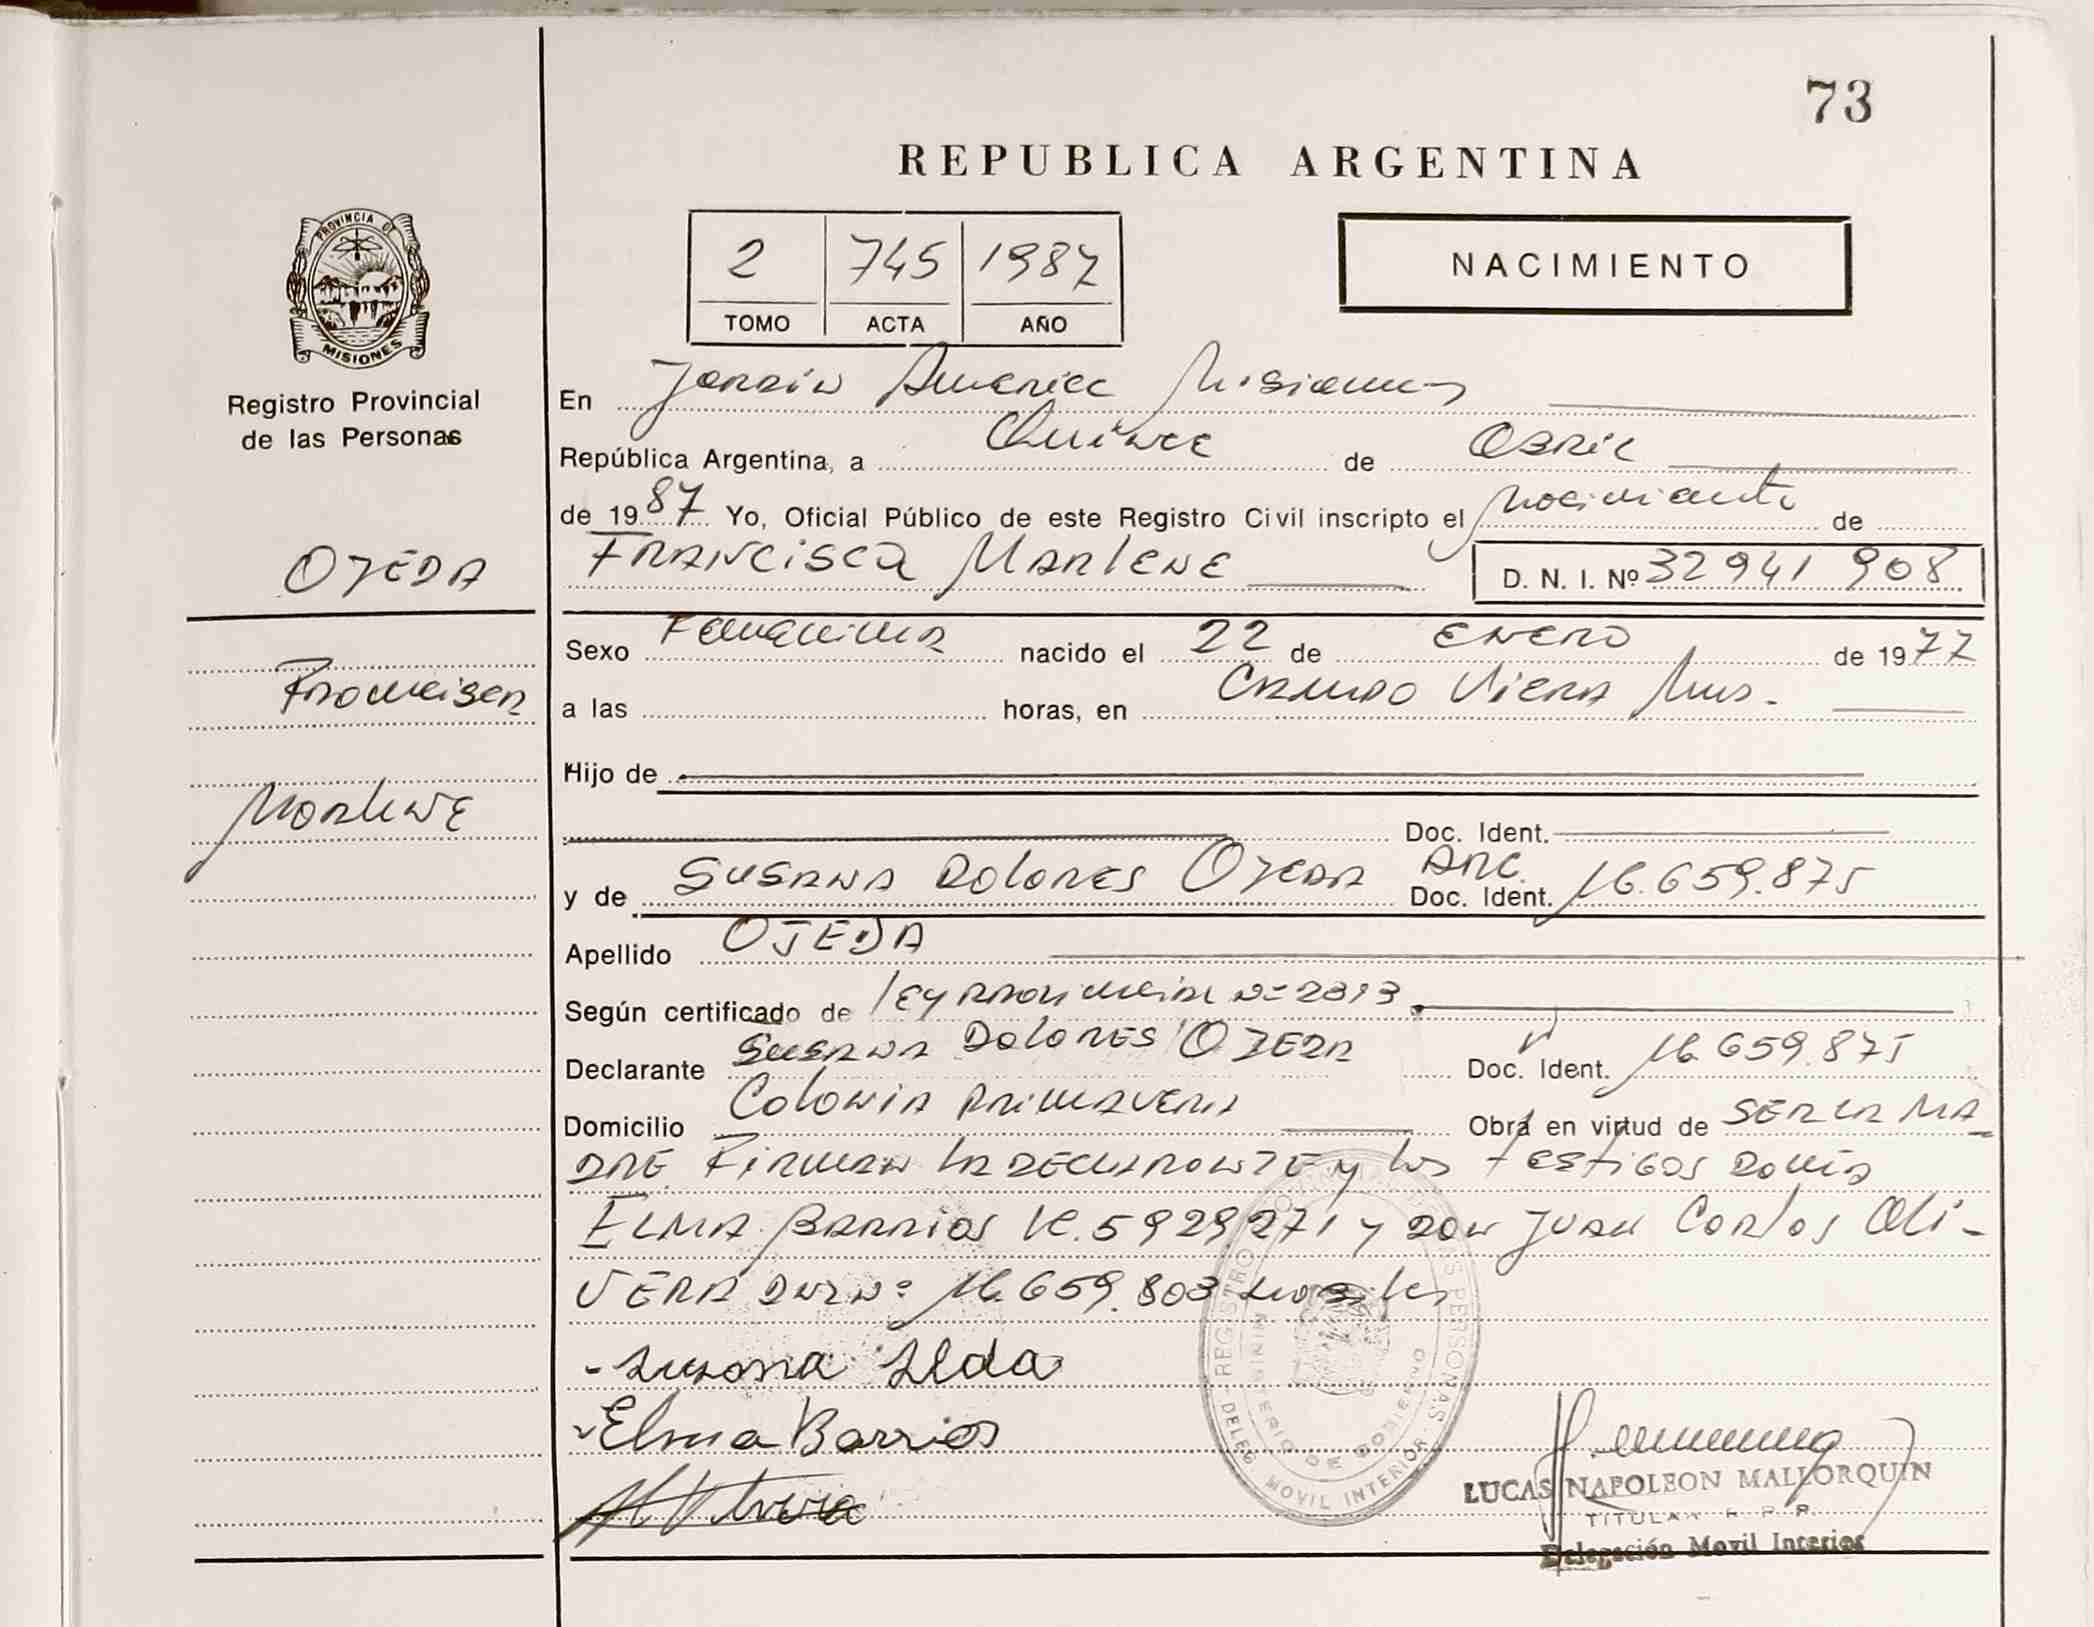 73
REPUBLICA ARGENTINA
2 745 1987
TOMO ACTA AÑO
NACIMIENTO
PROVINCIA DE
MISIONES
Registro Provincial
de las Personas
OJEDA
Francisca
Marlene
En Jardín America Misiones
República Argentina, a Quince de Abril
de 1987 Yo, Oficial Público de este Registro Civil inscripto el Nacimiento de
FRANCISCA MARLENE D. N. I. Nº 32941908
Sexo Femenina nacido el 22 de ENERO de 1977
a las horas, en CAMPO VIERA Mnes.
Hijo de
Doc. Ident.
y de SUSANA DOLORES OJEDA ARG. Doc. Ident. 16.659.875
Apellido OJEDA
Según certificado de ley provincial Nº 2313
Declarante SUSANA DOLORES OJEDA Doc. Ident. 16.659.875
Domicilio COLONIA PRIMAVERA Obra en virtud de SER LA MA
DRE FIRMAN LA DECLARANTE y los testigos DOÑA
ELMA BARRIOS 5929271 y DON JUAN CARLOS OLI-
VERA DNI Nº 16.659.803
-Susana
-Elma Barrios
REGISTRO PROVINCIAL DE LAS PERSONAS - DELEG MOVIL INTERIOR
MINISTERIO DE GOBIERNO
LUCAS NAPOLEON MALLORQUIN
TITULAR R. P. P.
Delegación Movil Interior